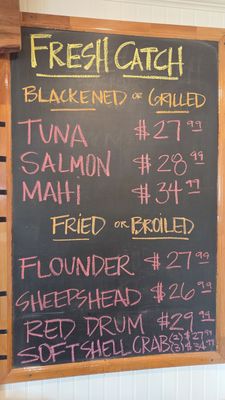 FRESH CATCH
BLACKENED OR GRILLED
TUNA $27.99
SALMON $28.99
MAHI $34.99
FRIED OR BROILED
FLOUNDER $27.99
SHEEPSHEAD $26.99
RED DRUM $29.99
SOFTSHELL CRAB (2) $27.99
(3) $34.99